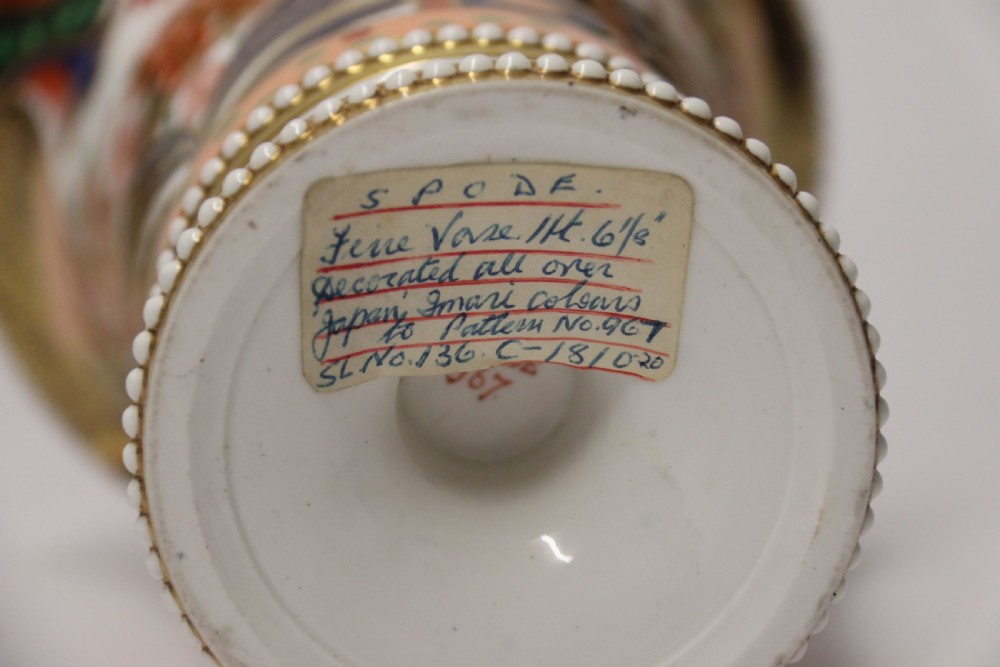 SPODE.
Fine Vase. Ht. 6 1/8"
Decorated all over
'Japan', Imari colours
to Pattern No. 967
SL No. 136. C-1810-20
967